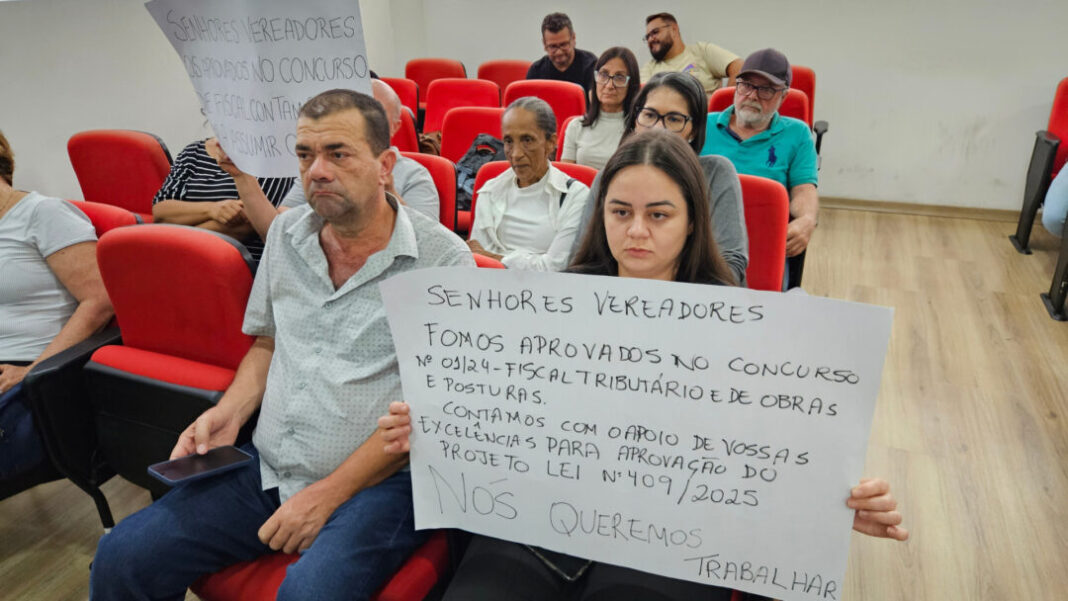 SENHORES VEREADORES
APROVADOS NO CONCURSO
FISCAL
ASSUMIR
SENHORES VEREADORES
FOMOS APROVADOS NO CONCURSO
Nº 01/24 - FISCAL TRIBUTÁRIO E DE OBRAS
E POSTURAS.
CONTAMOS COM O APOIO DE VOSSAS
EXCELÊNCIAS PARA APROVAÇÃO DO
PROJETO LEI Nº 409/2025
NÓS QUEREMOS
TRABALHAR